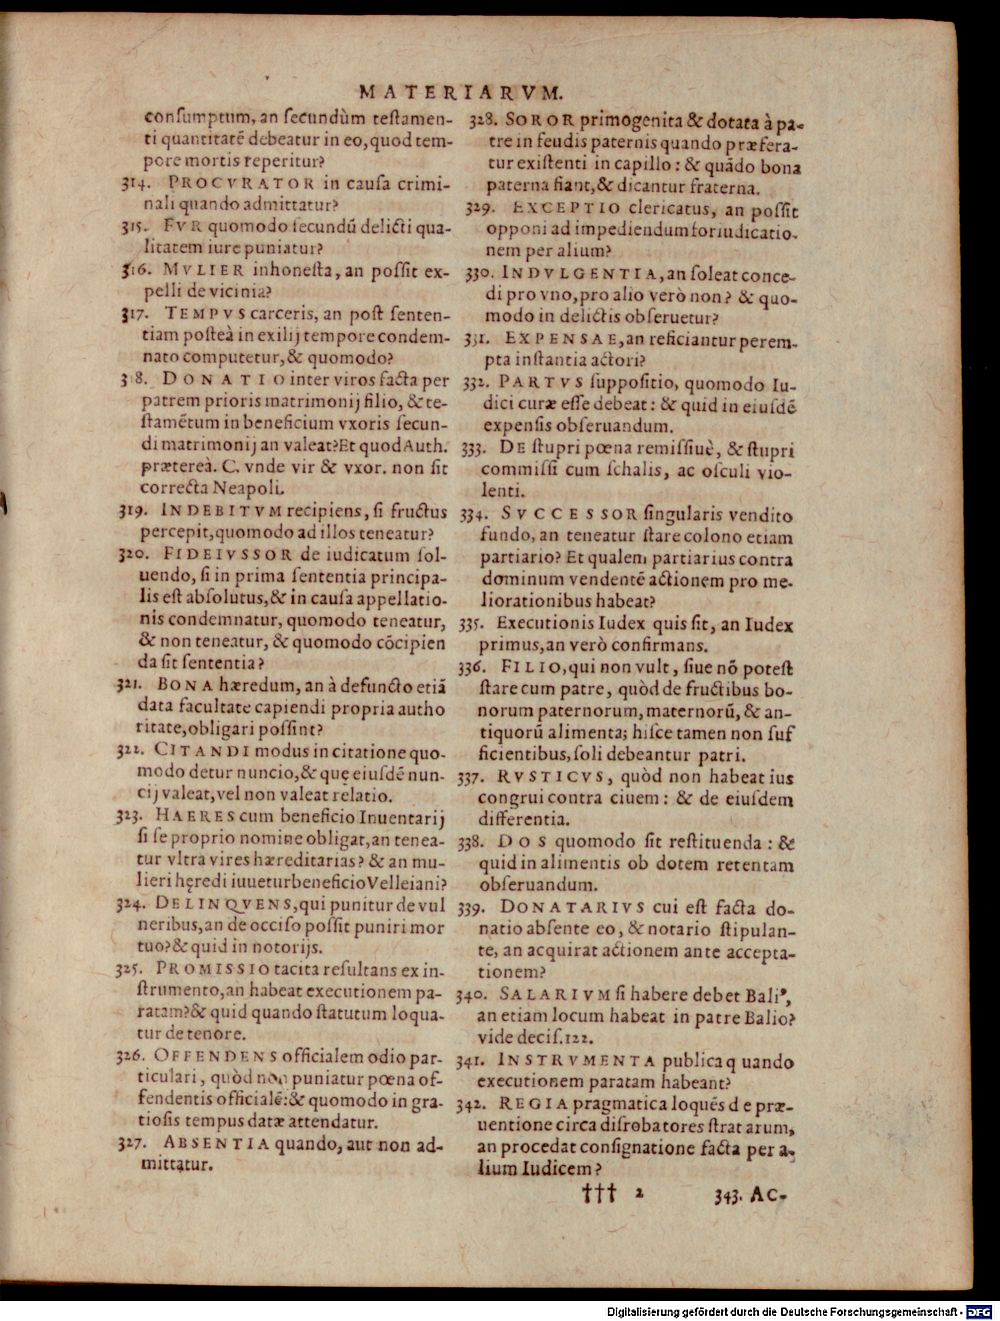 MATERIARVM.
conſumptum, an ſecundùm teſtamen-
ti quantitatē debeatur in eo, quod tem-
pore mortis reperitur?
314. PROCVRATOR in cauſa crimi-
nali quando admittatur?
315. FVR quomodo ſecundū delicti qua-
litatem iure puniatur?
316. MVLIER inhoneſta, an poſſit ex-
pelli de vicinia?
317. TEMPVS carceris, an poſt ſenten-
tiam poſteà in exilij tempore condem-
nato computetur, & quomodo?
318. DONATIO inter viros facta per
patrem prioris matrimonij filio, & te-
ſtamētum in beneficium vxoris ſecun-
di matrimonij an valeat? Et quod Auth.
præterea. C. vnde vir & vxor. non ſit
correcta Neapoli.
319. INDEBITVM recipiens, ſi fructus
percepit, quomodo ad illos teneatur?
320. FIDEIVSSOR de iudicatum ſol-
uendo, ſi in prima ſententia principa-
lis eſt abſolutus, & in cauſa appellatio-
nis condemnatur, quomodo teneatur,
& non teneatur, & quomodo cōcipien
da ſit ſententia?
321. BONA hæredum, an à defuncto etiā
data facultate capiendi propria autho
ritate, obligari poſſint?
322. CITANDI modus in citatione quo-
modo detur nuncio, & quę eiuſdē nun-
cij valeat, vel non valeat relatio.
323. HAERES cum beneficio Inuentarij
ſi ſe proprio nomine obligat, an tenea-
tur vltra vires hæreditarias? & an mu-
lieri hęredi iuuetur beneficio Velleiani?
324. DELINQVENS, qui punitur de vul
neribus, an de occiſo poſſit puniri mor
tuo? & quid in notorijs.
325. PROMISSIO tacita reſultans ex in-
ſtrumento, an habeat executionem pa-
ratam? & quid quando ſtatutum loqua-
tur de tenore.
326. OFFENDENS officialem odio par-
ticulari, quòd non puniatur pœna of-
fendentis officialē: & quomodo in gra-
tioſis tempus datæ attendatur.
327. ABSENTIA quando, aut non ad-
mittatur.
328. SOROR primogenita & dotata à pa-
tre in feudis paternis quando præfera-
tur exiſtenti in capillo: & quādo bona
paterna fiant, & dicantur fraterna.
329. EXCEPTIO clericatus, an poſſit
opponi ad impediendum foriudicatio-
nem per alium?
330. INDVLGENTIA, an ſoleat conce-
di pro vno, pro alio verò non? & quo-
modo in delictis obſeruetur?
331. EXPENSAE, an reficiantur perem-
pta inſtantia actori?
332. PARTVS ſuppoſitio, quomodo Iu-
dici curæ eſſe debeat: & quid in eiuſdē
expenſis obſeruandum.
333. DE ſtupri pœna remiſſiuè, & ſtupri
commiſſi cum ſchalis, ac oſculi vio-
lenti.
334. SVCCESSOR ſingularis vendito
fundo, an teneatur ſtare colono etiam
partiario? Et qualem partiarius contra
dominum vendentē actionem pro me-
liorationibus habeat?
335. Executionis Iudex quis ſit, an Iudex
primus, an verò confirmans.
336. FILIO, qui non vult, ſiue nō poteſt
ſtare cum patre, quòd de fructibus bo-
norum paternorum, maternorū, & an-
tiquorū alimenta; hiſce tamen non ſuf
ficientibus, ſoli debeantur patri.
337. RVSTICVS, quòd non habeat ius
congrui contra ciuem: & de eiuſdem
differentia.
338. DOS quomodo ſit reſtituenda: &
quid in alimentis ob dotem retentam
obſeruandum.
339. DONATARIVS cui eſt facta do-
natio abſente eo, & notario ſtipulan-
te, an acquirat actionem ante accepta-
tionem?
340. SALARIVM ſi habere debet Baliꝰ,
an etiam locum habeat in patre Balio?
vide deciſ. 122.
341. INSTRVMENTA publica q uando
executionem paratam habeant?
342. REGIA pragmatica loquēs d e præ-
uentione circa diſrobatores ſtrat arum,
an procedat conſignatione facta per a-
lium Iudicem?
††† 2 343. AC-
Digitalisierung gefördert durch die Deutsche Forschungsgemeinschaft - DFG